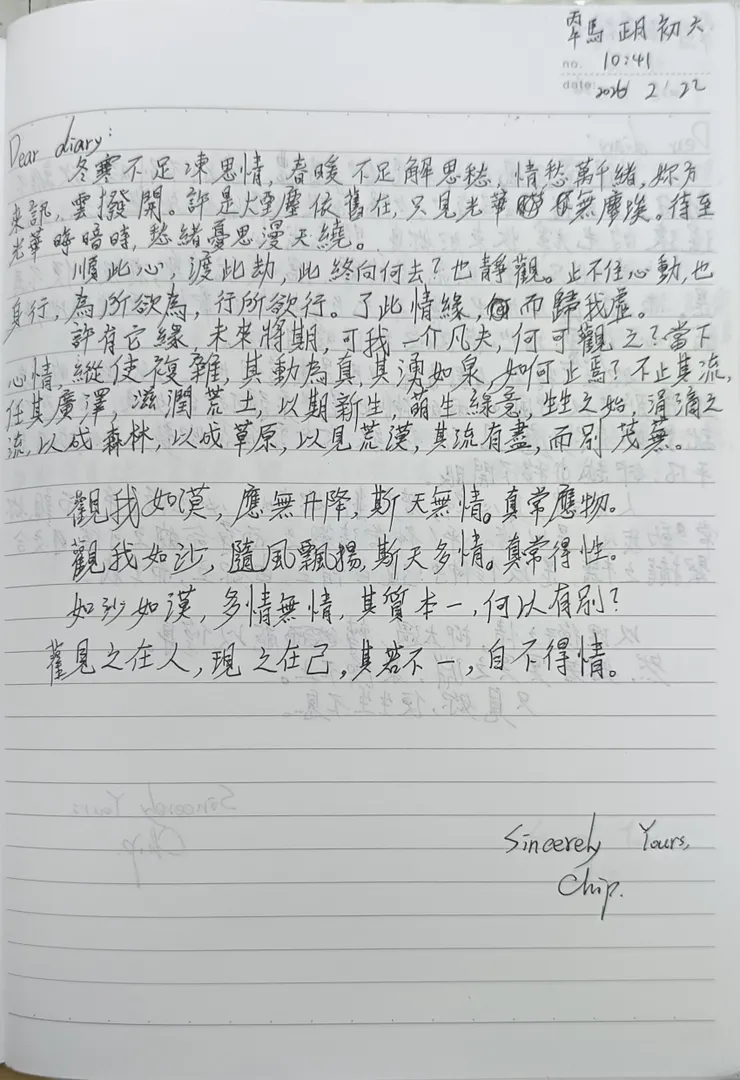 丙午馬 正月初六
no. 10:41
date: 2026 2 / 22
Dear diary:
冬寒不足凍思情，春暖不足解思愁，情愁萬千緒，妳方
來訊，雲撥開。許是塵依舊在，只見光華無塵埃。待至
光華時暗時，愁緒憂思漫天繞。
順此心，渡此劫，此終向何去？也靜觀。止不住心動，也
身行，為所欲為，行所欲行。了此情緣，而歸我虛。
許有它緣，未來將期，可我一介凡夫，何可觀之？當下
心情，縱使複雜，其動為真，其湧如泉，如何止焉？不止其流，
任其廣澤，滋潤荒土，以期新生，萌生綠意，生生之始，涓滴之
流，以成森林，以成草原，以見荒漠，其流有盡，而別茂蕪。
觀我如漠，應無升降，斯天無情。真常應物。
觀我如沙，隨風飄揚，斯天多情。真常得性。
如沙如漠，多情無情，其質本一，何以有別？
觀之在人，現之在己，其若不一，自不得情。
Sincerely Yours,
Chip.